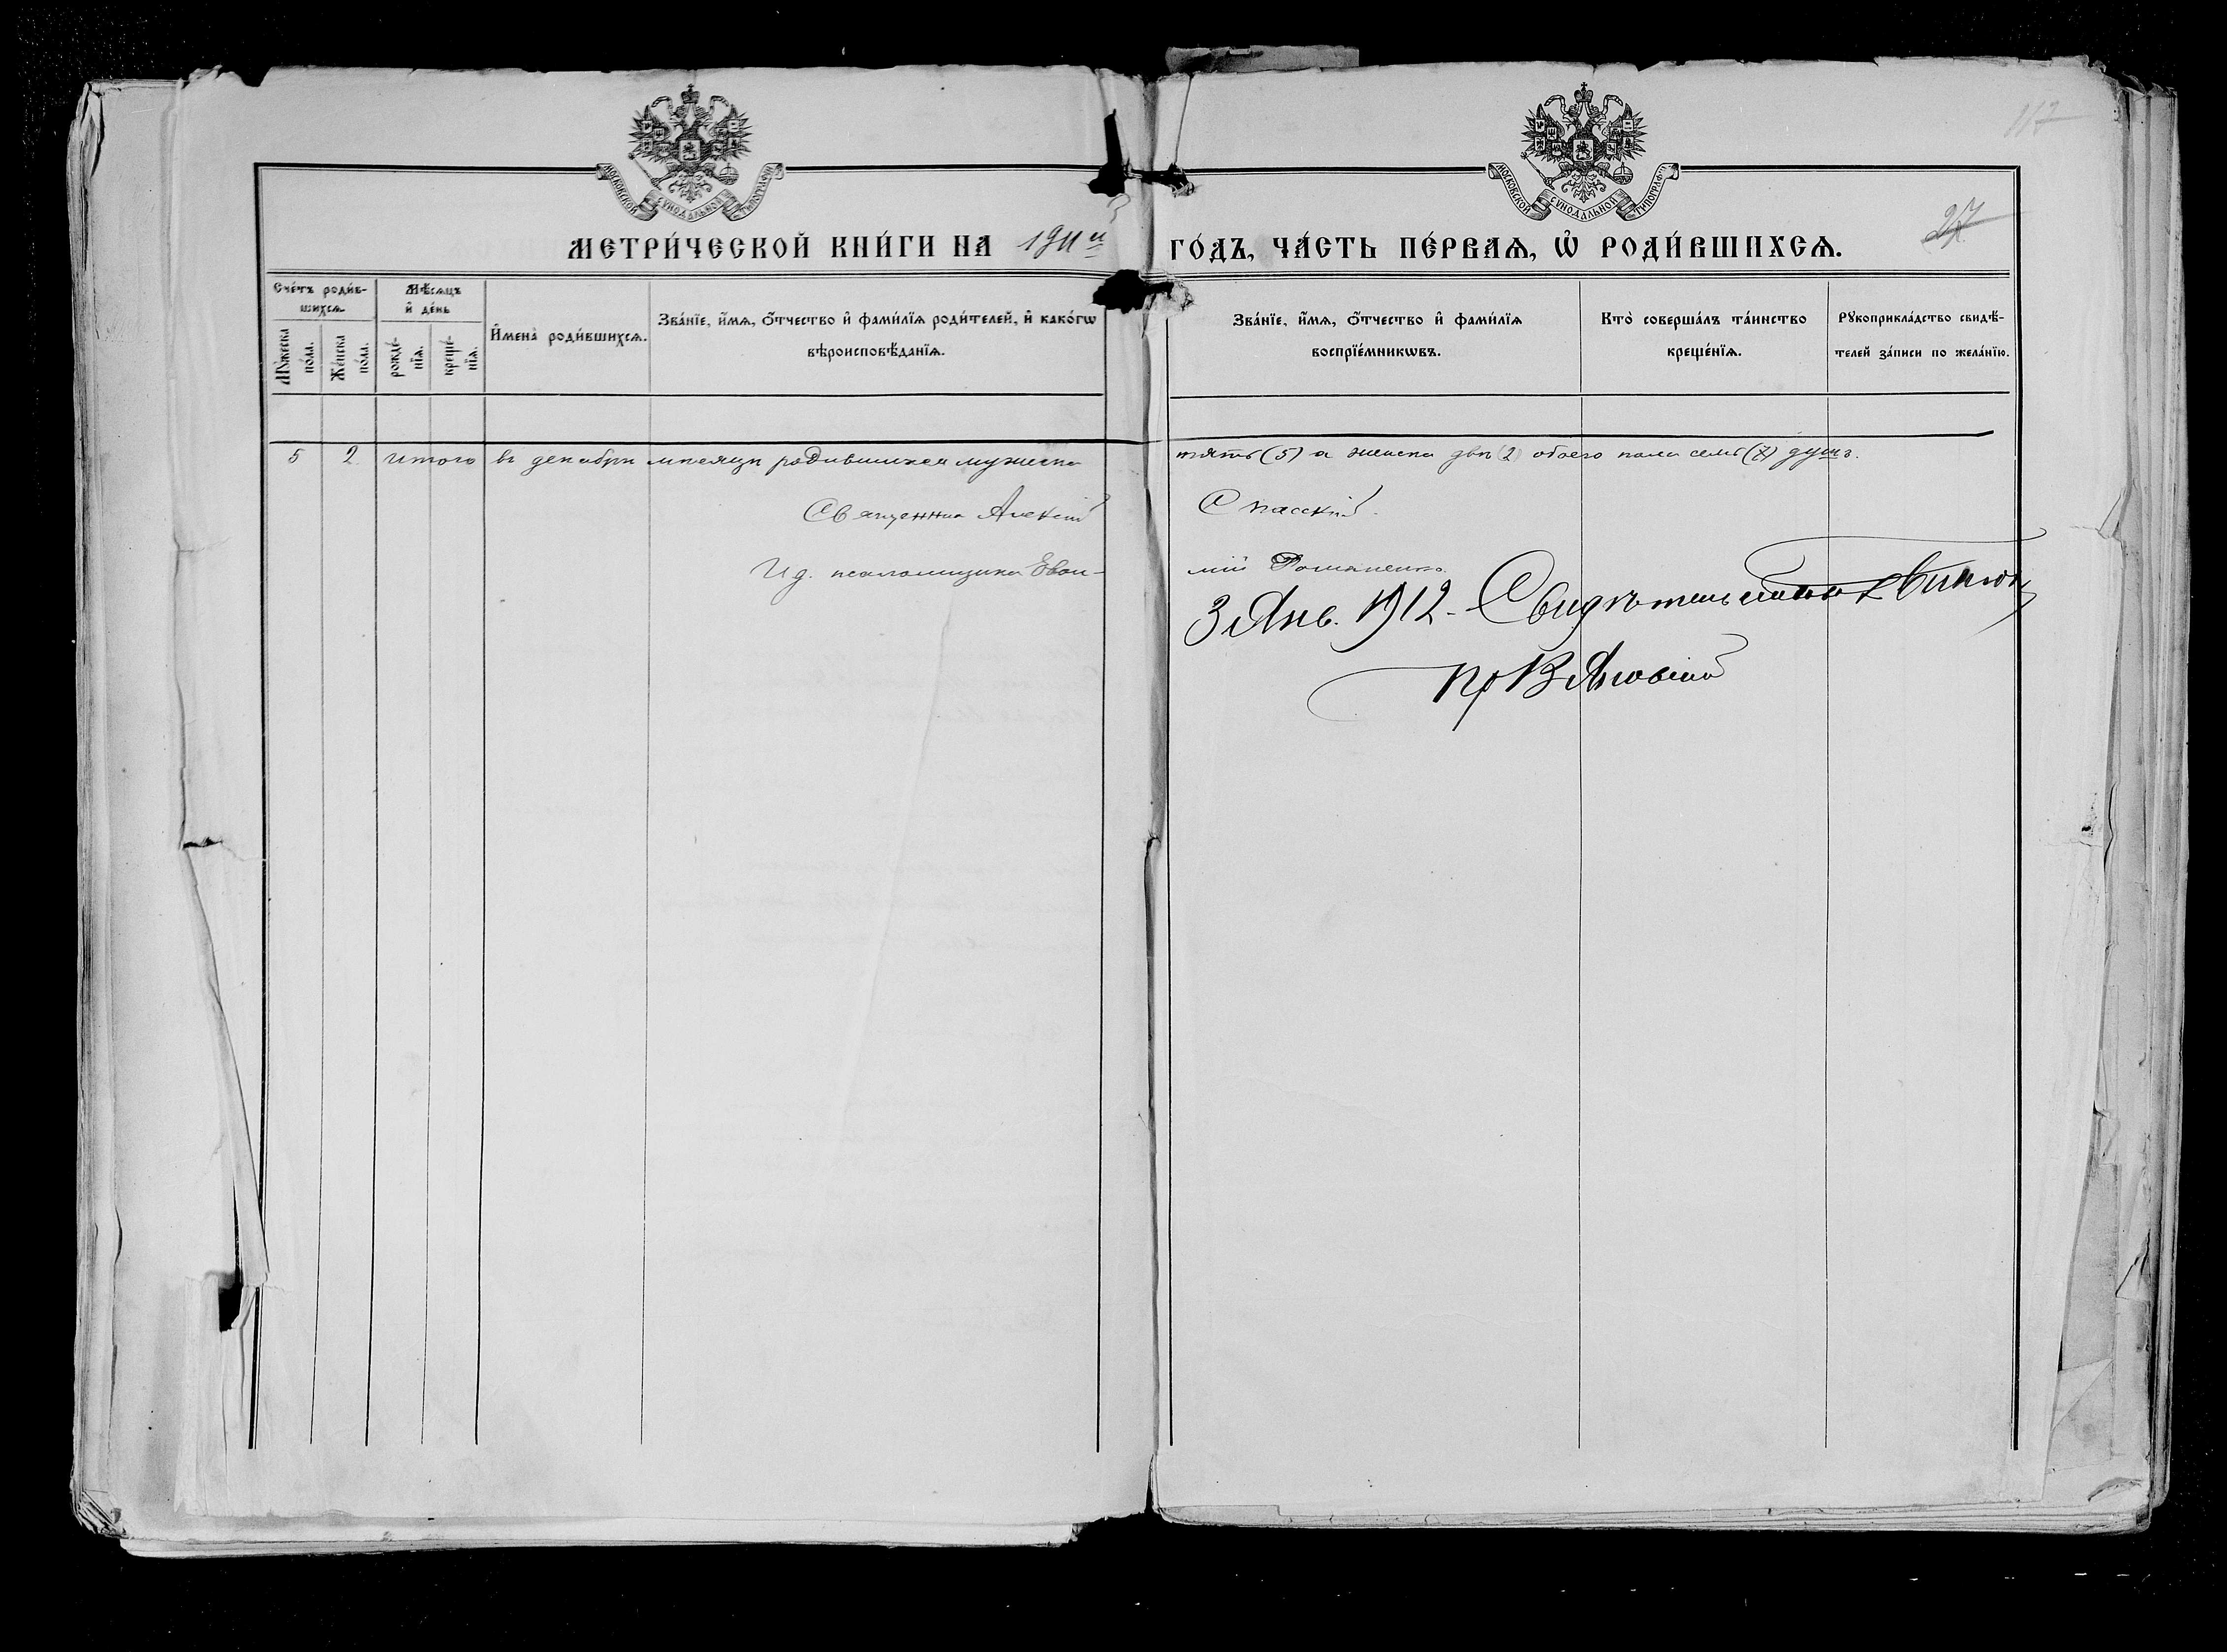 117
МОСКОВСКОЙ СѴНОДАЛЬНОЙ ТИПОГРАФІИ
МОСКОВСКОЙ СѴНОДАЛЬНОЙ ТИПОГРАФІИ
27
МЕТРИ́ЧЕСКОЙ КНИ́ГИ НА 1911й ГО́ДЪ, ЧА́СТЬ ПЕ́РВАѦ, Ѡ҆ РОДИ́ВШИХСѦ.
Сче́тъ роди́в-
шихсѧ.
Мꙋ́жеска
по́ла.
Же́нска
по́ла.
Мѣ́сѧцъ
и҆ де́нь
рожде́-
нїѧ.
креще́-
нїѧ.
И҆мена̀ роди́вшихсѧ.
Зва́нїе, и҆́мѧ, ѻ҆́тчество и҆ фами́лїѧ роди́телей, и҆ како́гѡ
вѣроисповѣ́данїѧ.
Зва́нїе, и҆́мѧ, ѻ҆́тчество и҆ фами́лїѧ
воспрїе́мникѡвъ.
Кто̀ соверша́лъ та́инство
креще́нїѧ.
Рꙋкоприкла́дство свидѣ́-
телей за́писи по жела́нїю.
5 2 Итого въ декабрѣ мѣсяцѣ родившихся мужеска пять (5) а женска двѣ (2) обоего пола семь (7) душъ.
Священникъ Алексій Спасскій.
И д. псаломщика Евѳи-
мій Романенко.
3 Янв. 1912 - Свидѣтельствов